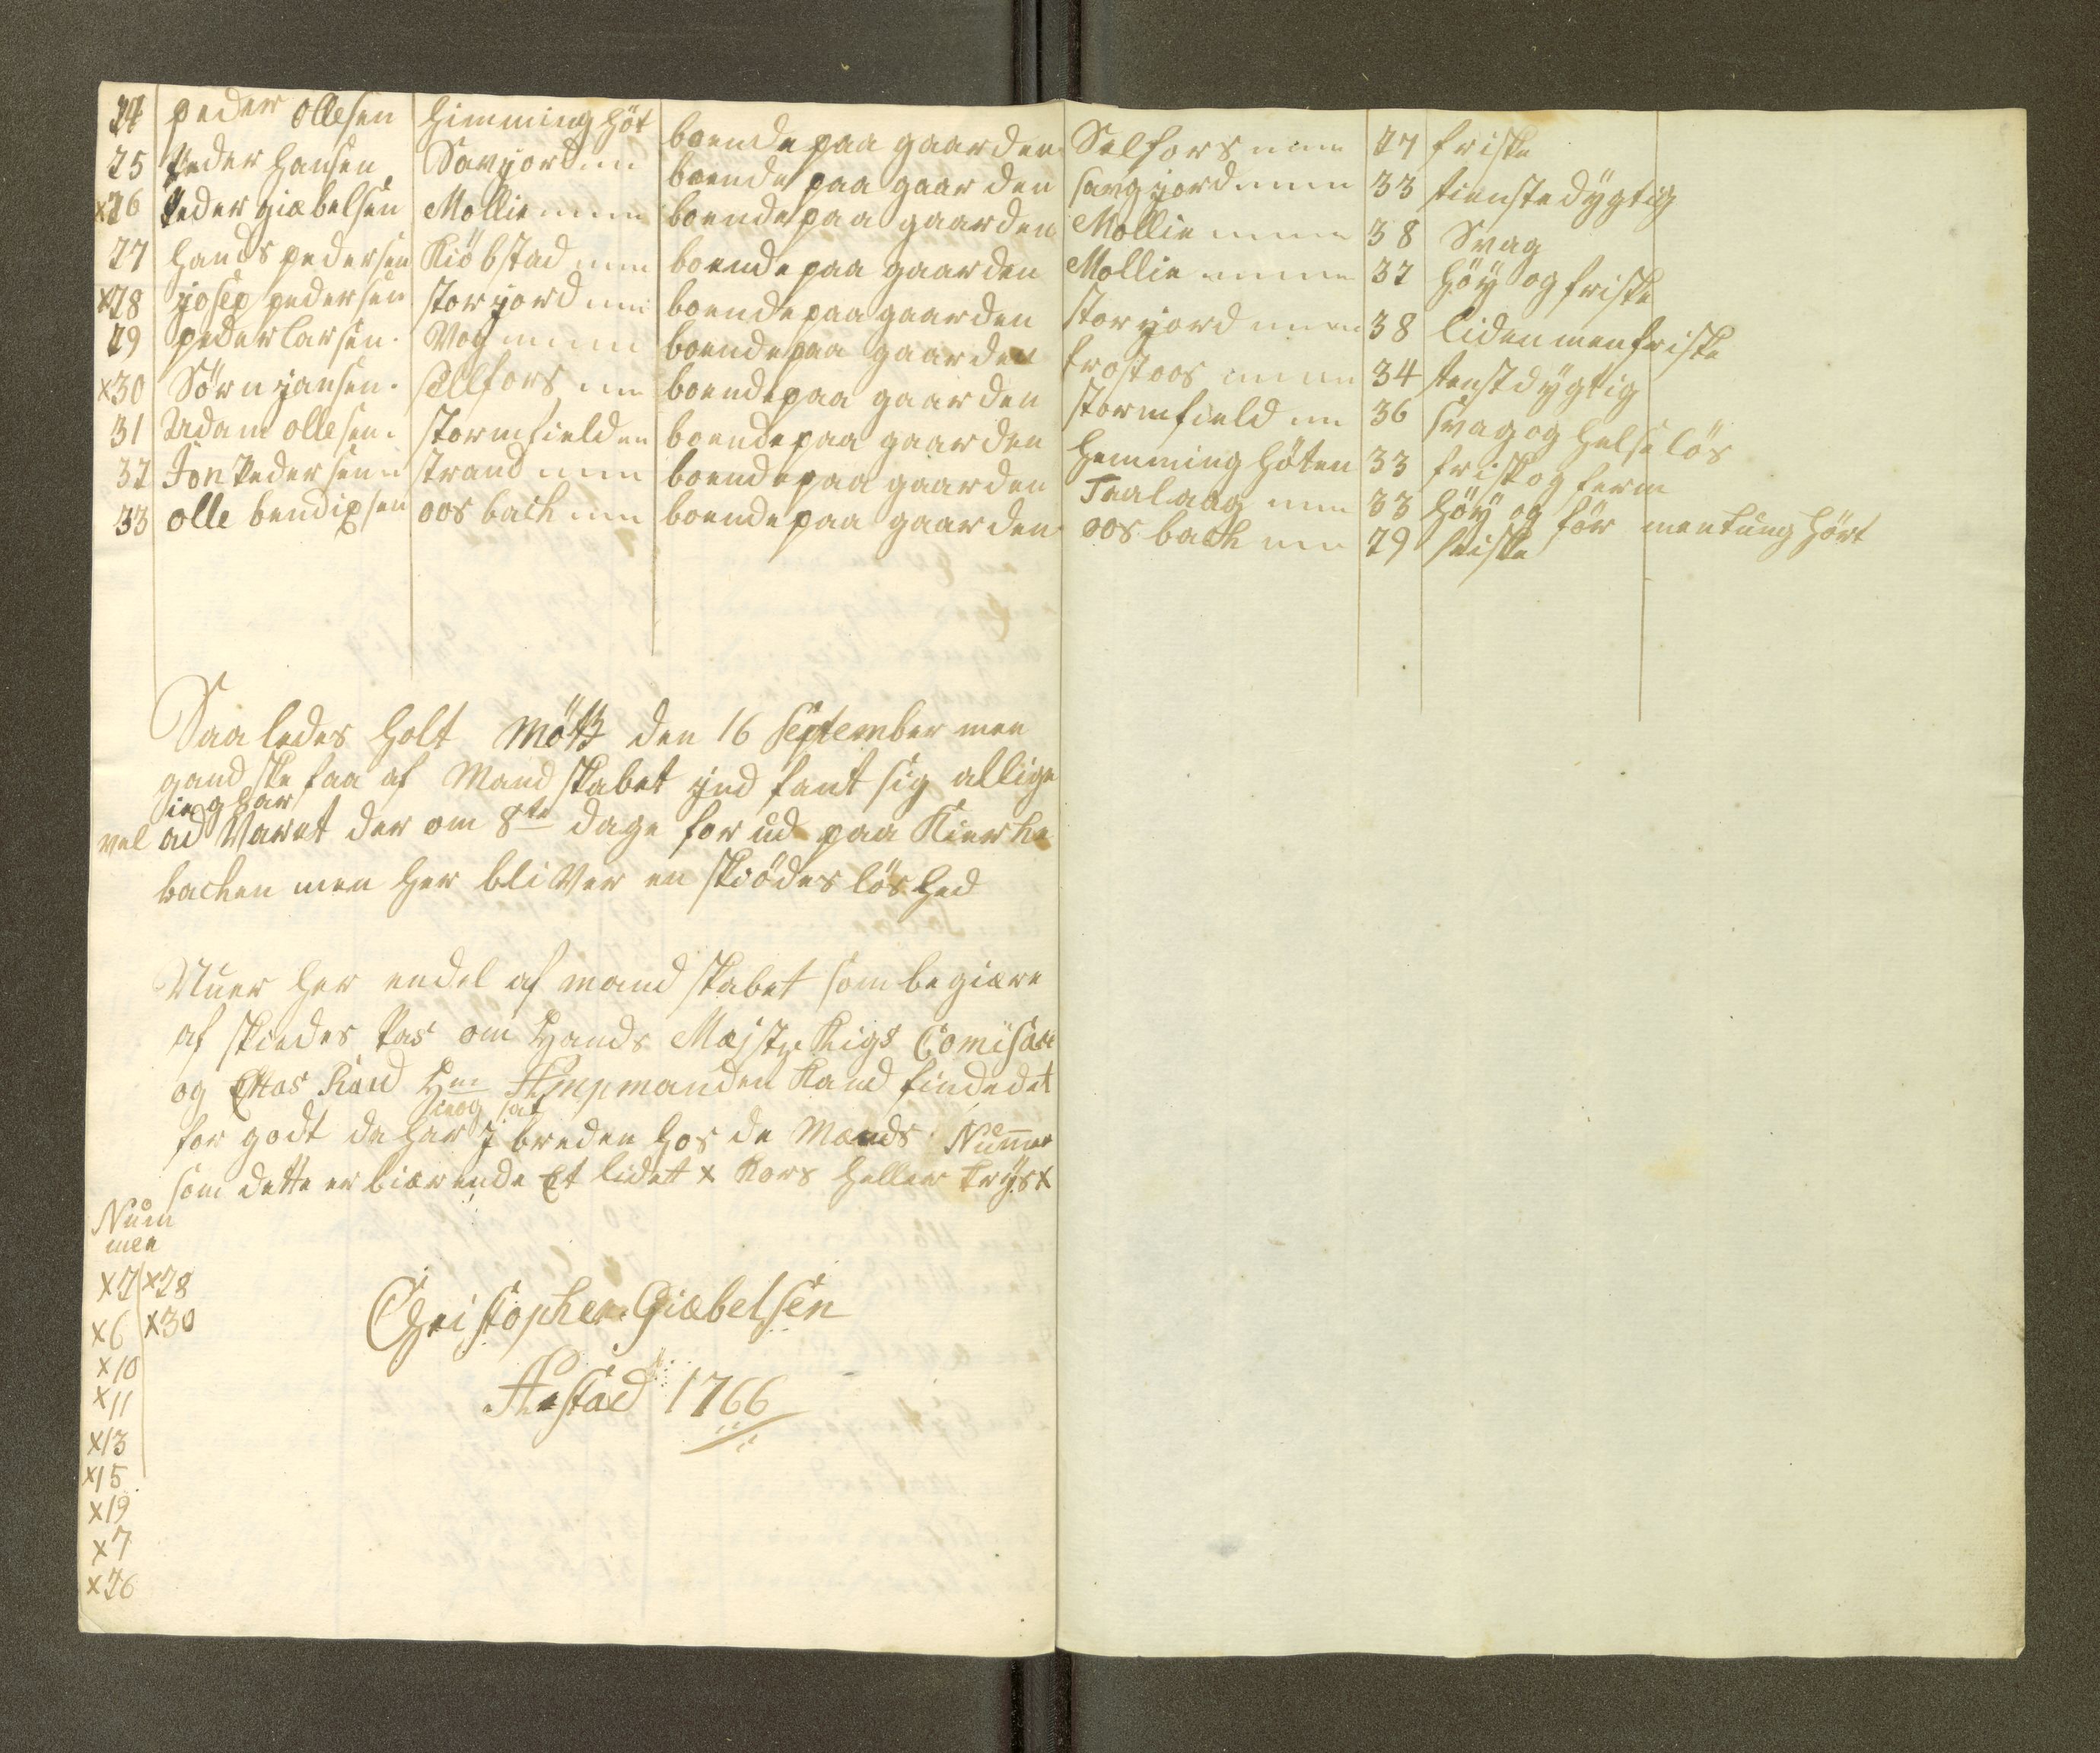 24 peder ollesen himminghöt boende paa gaarden Selfors 27 friske
25 Peder hansen Savjord boende paa gaarden savgjord 33 tienstedygtig
x26 Peder giæbelsen Mollie boende paa gaarden Mollie 38 Svag
27 hands pedersen Kiöbstad boende paa gaarden Mollie 32 höy og friske
x28 josep pedersen storjord boende paa gaarden storjord 38 liden men friske
29 peder larsen Vog boende paa gaarden trostoos 34 tenstdygtig
x30 Sörn jansen sellfors boende paa gaarden stormfield 36 svag og helselös
31 Adam ollesen stormfielden boende paa gaarden hemminghöten 33 frisk og ferm
32 Jon Pedersen strand boende paa gaarden 33 höy og för men tunghört
33 olle bendixsen oosbach boende paa gaarden oosbach 29 friske
Saaledes holt Mötz den 16 September men
gandske faa af Mandskabet jnd fant sig allige
ieg har
vel ad Varet der om 8te dage forud paa Kierke
backen men her bliver en skiödeslöshed
Nu er her endel af mandskabet som begiære
afskeeds Pas om Hands Majstz Krigs Comisari
og Hr Ampmanden Kand finde det
ieog sat
for godt da har J breden hos de Mænds Numer
som dette er biærende Et lidet x Kors heller Krys x
Num
mer
x2 x28
x6 x30
x10
x11
x13
x15
x19
x7
x26
Christopher Giæbelsen
1766